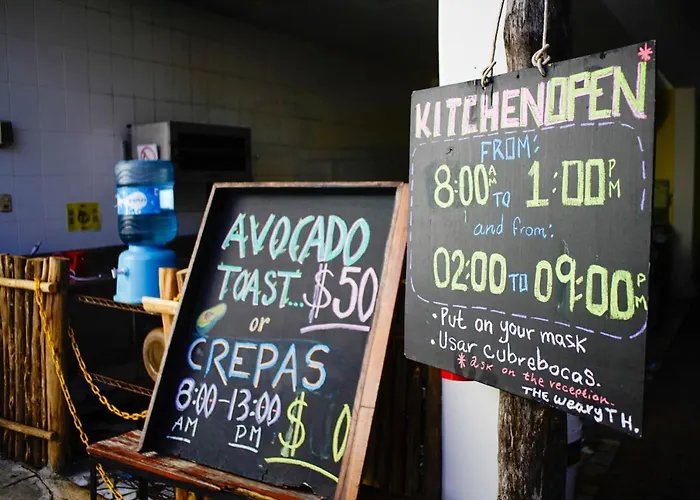 AVOCADO
TOAST... $50
or
CREPAS
8:00-13:00
AM PM
$0
KITCHEN OPEN *
FROM:
8:00 AM TO 1:00 PM
and from:
02:00 TO 09:00 PM
• Put on your mask
• Usar cubrebocas.
* ask on the reception.
THE weary TH.